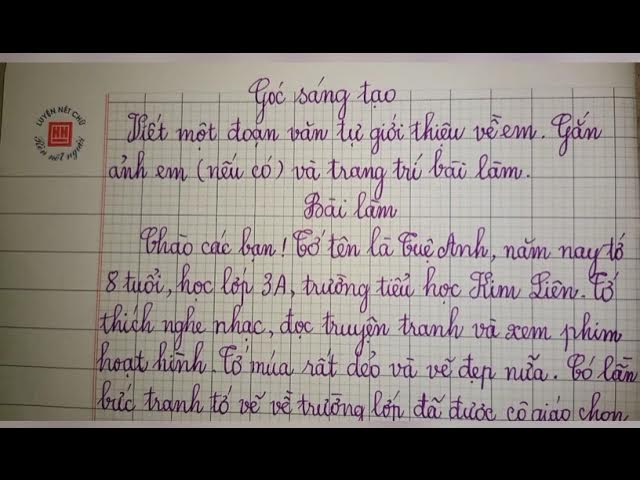 LUYỆN NÉT CHỮ
Rèn nết người
Góc sáng tạo
Viết một đoạn văn tự giới thiệu về em. Gắn
ảnh em (nếu có) và trang trí bài làm.
Bài làm
Chào các bạn! Tớ tên là Tuệ Anh, năm nay tớ
8 tuổi, học lớp 3A, trường tiểu học Kim Liên. Tớ
thích nghe nhạc, đọc truyện tranh và xem phim
hoạt hình. Tớ múa rất dẻo và vẽ đẹp nữa. Có lần
bức tranh tớ vẽ về trường lớp đã được cô giáo chọn